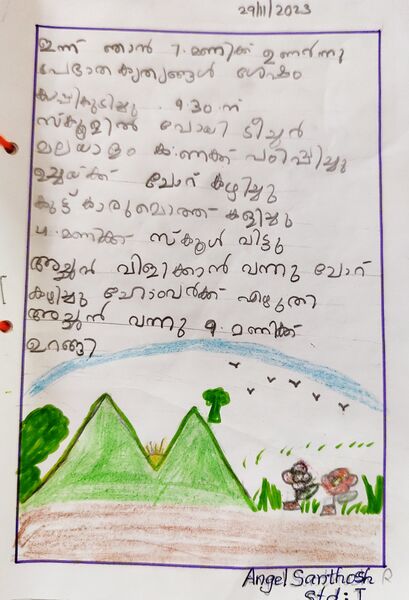 29/11/2023
ഇന്ന് ഞാൻ 7.മണിക്ക് ഉണർന്നു
പ്രഭാത കൃത്യങ്ങൾ ശേഷം
കാപ്പികുടിച്ചു . 9.30 ന്
സ്കൂളിൽ പോയി ടീച്ചർ
മലയാളം കണക്ക് പഠിപ്പിച്ചു
ഉച്ചയ്ക്ക് ചോറ് കഴിച്ചു
കൂട്ട് കാരുമൊത്ത് കളിച്ചു
4.മണിക്ക് സ്കൂൾ വിട്ടു
അച്ഛൻ വിളിക്കാൻ വന്നു ചോറ്
കഴിച്ചു ഹോംവർക്ക് എഴുതി
അച്ഛൻ വന്നു 9.മണിക്ക്
ഉറങ്ങി
Angel Santhosh R
Std: I